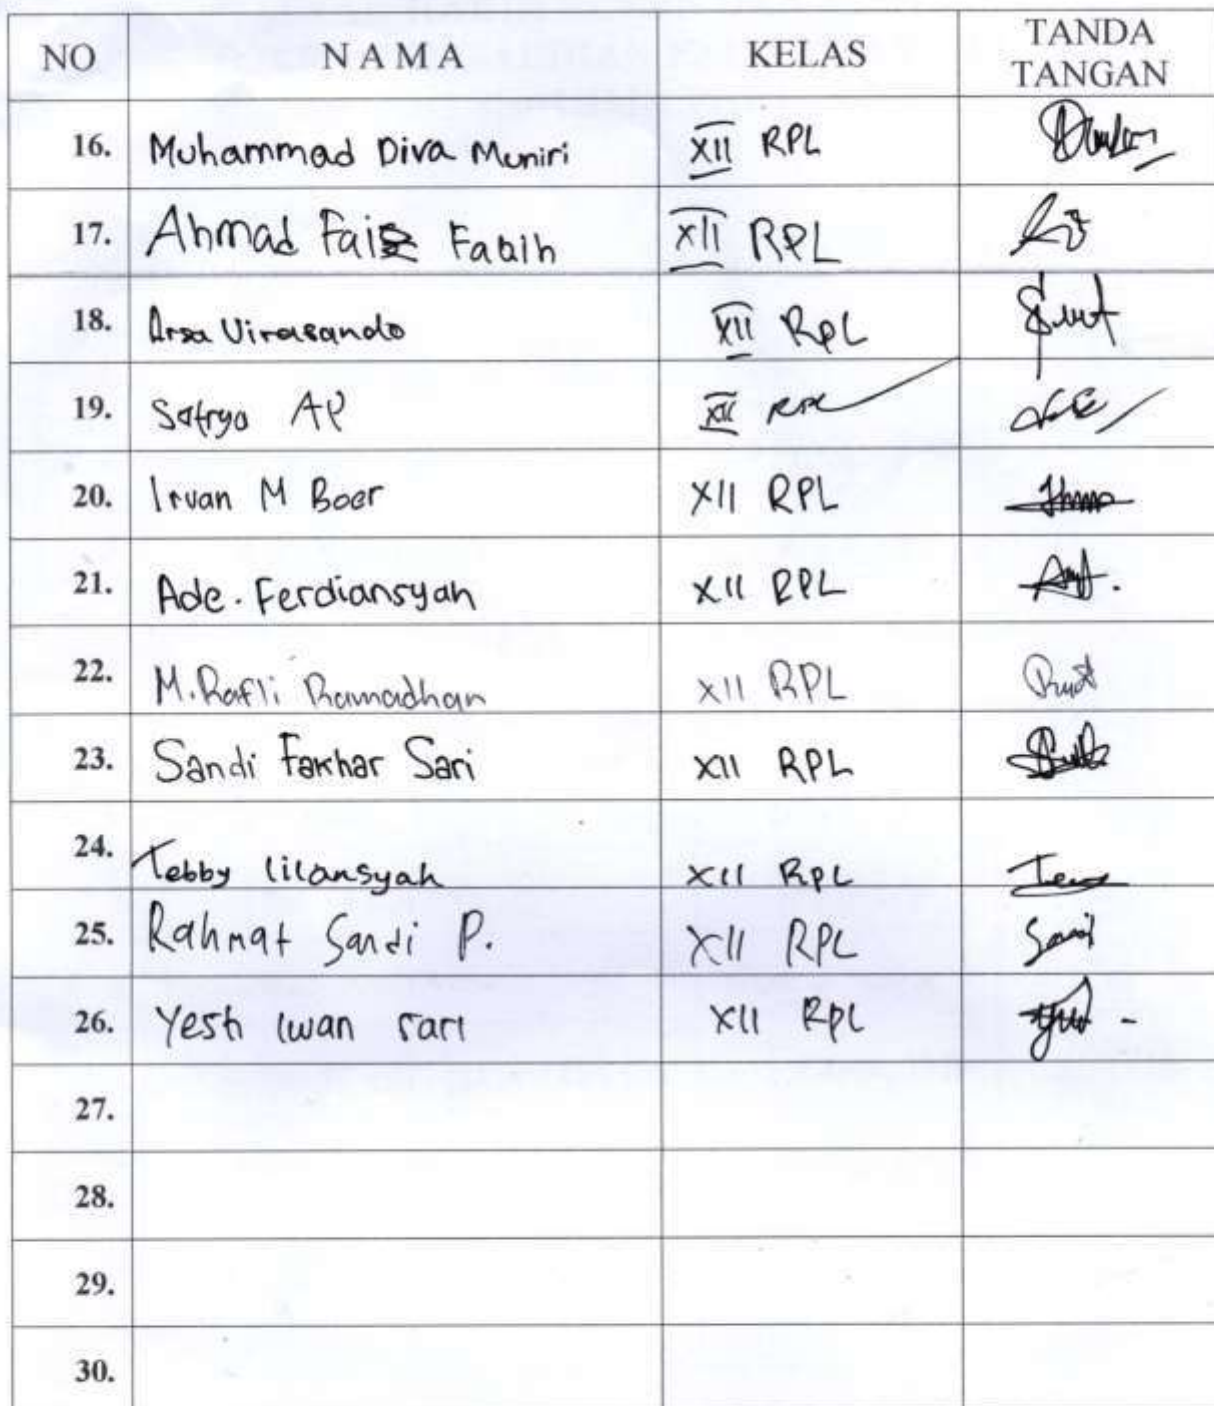 NO NAMA KELAS TANDA TANGAN
16. Muhammad Diva Muniri XII RPL
17. Ahmad Faiz Fabih XII RPL
18. Arsa Virasando XII RPL
19. Satryo AP XII RPL
20. Irvan M Boer XII RPL
21. Ade. Ferdiansyah XII RPL
22. M. Rafli Ramadhan XII RPL
23. Sandi Fakhar Sari XII RPL
24. Tebby lilansyah XII RPL
25. Rahmat Sandi P. XII RPL
26. Yesti Iwan Sari XII RPL
27.
28.
29.
30.